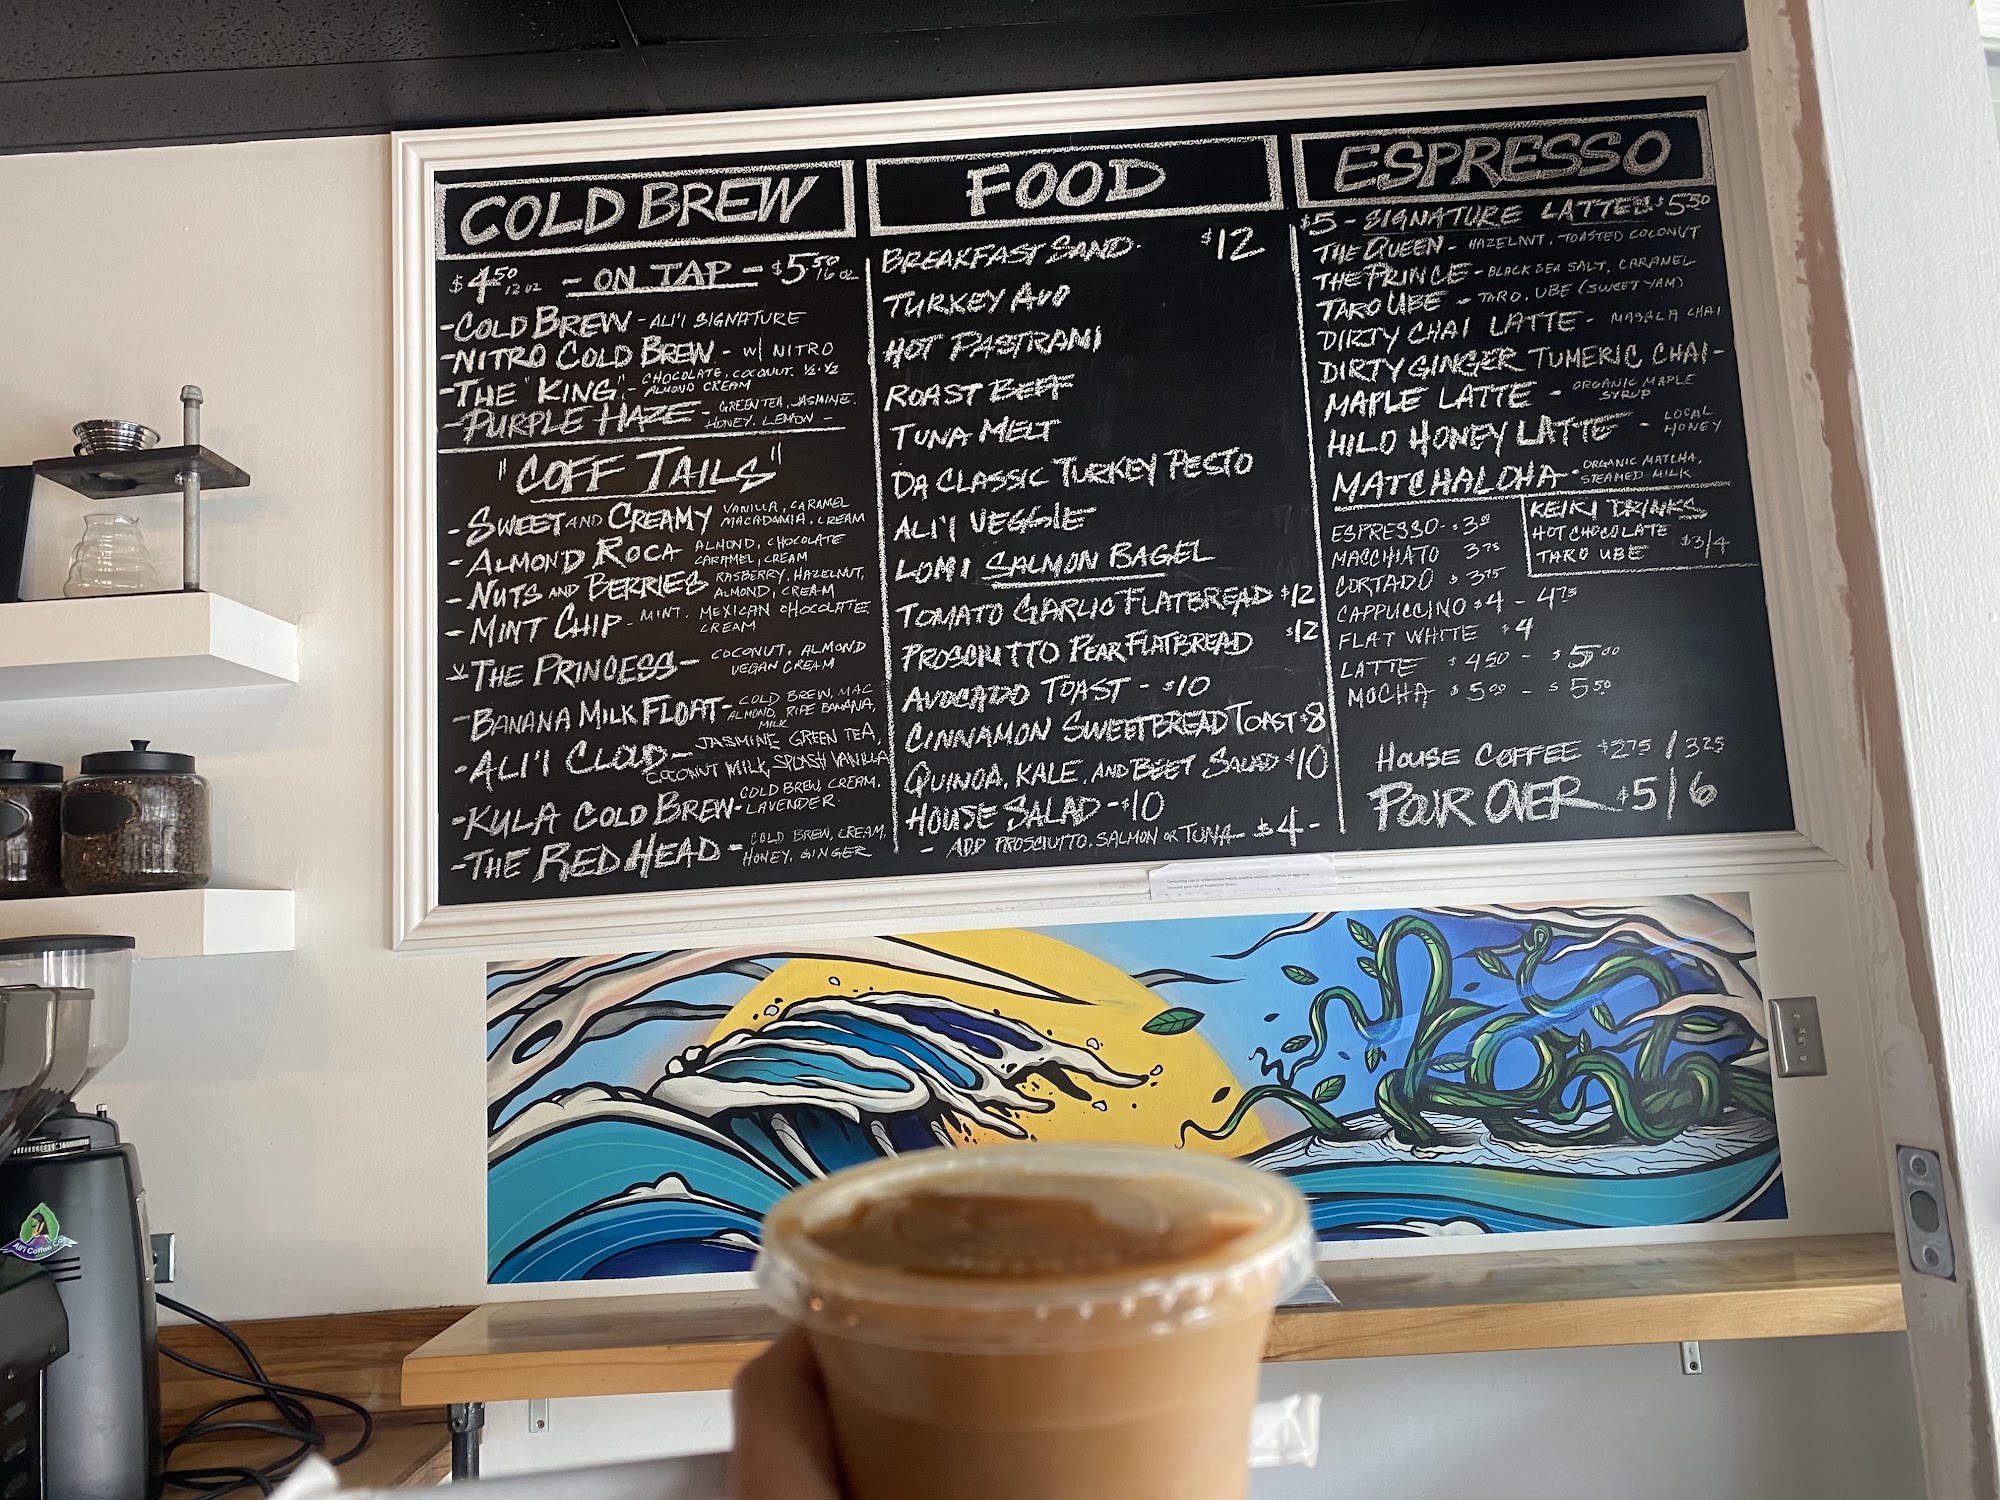 COLD BREW
$4.50 12 OZ - ON TAP - $5.50 16 OZ
- COLD BREW - ALI'I SIGNATURE
- NITRO COLD BREW - W/ NITRO
- THE "KING" - CHOCOLATE, COCONUT. ½·½
ALMOND CREAM
- PURPLE HAZE - GREEN TEA, JASMINE.
HONEY. LEMON -
"COFF TAILS"
- SWEET AND CREAMY VANILLA, CARAMEL
MACADAMIA, CREAM
- ALMOND ROCA ALMOND, CHOCOLATE
CARAMEL, CREAM
- NUTS AND BERRIES RASBERRY, HAZELNUT,
ALMOND, CREAM
- MINT CHIP - MINT. MEXICAN CHOCOLATE
CREAM
THE PRINCESS - COCONUT. ALMOND
VEGAN CREAM
- BANANA MILK FLOAT - COLD BREW, MAC
ALMOND, RIPE BANANA,
MILK
- ALI'I CLOUD - JASMINE GREEN TEA,
COCONUT MILK, SPLASH VANILLA
- KULA COLD BREW - COLD BREW, CREAM.
LAVENDER.
- THE RED HEAD - COLD BREW, CREAM,
HONEY. GINGER
FOOD
BREAKFAST SAND. $12
TURKEY AVO
HOT PASTRAMI
ROAST BEEF
TUNA MELT
DA CLASSIC TURKEY PESTO
ALI'I VEGGIE
LOMI SALMON BAGEL
TOMATO GARLIC FLATBREAD $12
PROSCIUTTO PEAR FLATBREAD $12
AVOCADO TOAST - $10
CINNAMON SWEETBREAD TOAST $8
QUINOA, KALE, AND BEET SALAD $10
HOUSE SALAD - $10
- ADD PROSCIUTTO. SALMON OR TUNA - $4 -
ESPRESSO
$5 - SIGNATURE LATTES $5.50
THE QUEEN - HAZELNUT, TOASTED COCONUT
THE PRINCE - BLACK SEA SALT, CARAMEL
TARO UBE - TARO, UBE (SWEET YAM)
DIRTY CHAI LATTE - MASALA CHAI
DIRTY GINGER TUMERIC CHAI -
MAPLE LATTE - ORGANIC MAPLE
SYRUP
HILO HONEY LATTE - LOCAL
HONEY
MATCHALOHA - ORGANIC MATCHA,
STEAMED MILK
ESPRESSO - $3.00
MACCHIATO 3.75
CORTADO $3.75
CAPPUCCINO $4 - 4.75
FLAT WHITE $4
LATTE $4.50 - $5.00
MOCHA $5.00 - $5.50
KEIKI DRINKS
HOT CHOCOLATE
TARO UBE $3/4
HOUSE COFFEE $2.75 / 3.25
POUR OVER $5/6
Ali'i Coffee Co.